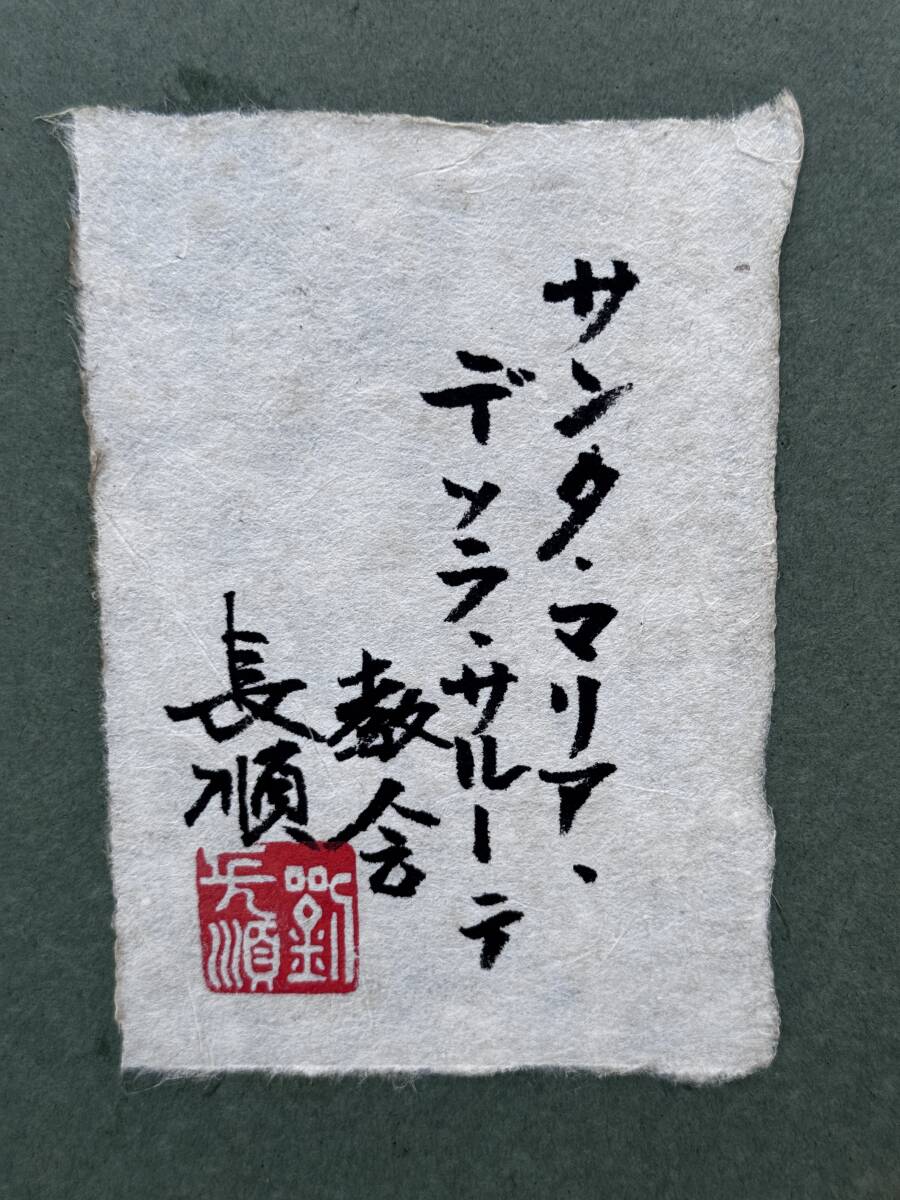 サンタ・マリア・
デッラ・サルーテ
教会
長順
劉長順